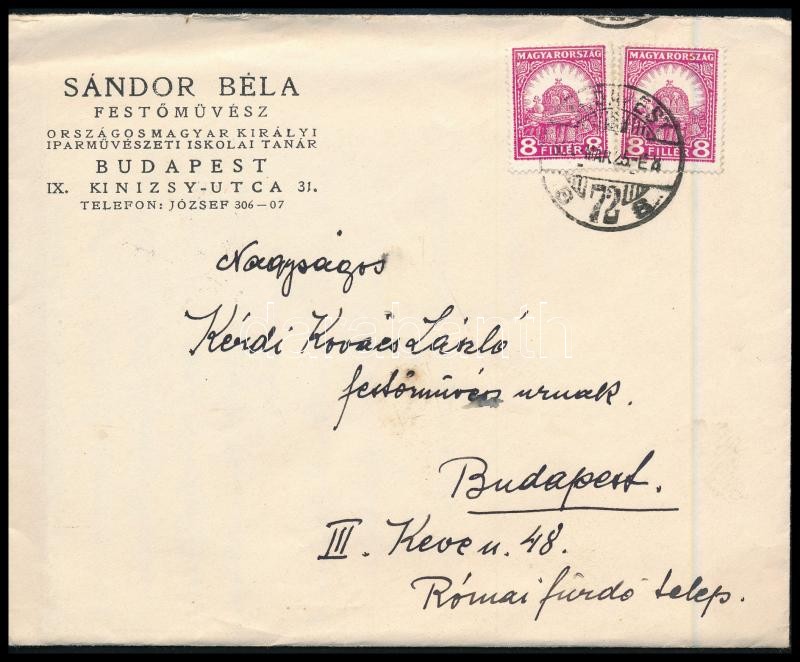 SÁNDOR BÉLA
FESTŐMŰVÉSZ
ORSZÁGOS MAGYAR KIRÁLYI
IPARMŰVÉSZETI ISKOLAI TANÁR
BUDAPEST
IX. KINIZSY-UTCA 31.
TELEFON: JÓZSEF 306—07
MAGYARORSZÁG
8 FILLÉR 8
MAGYARORSZÁG
8 FILLÉR 8
72
Nagyságos
Kézdi Kovács László
festőművés urnak.
Budapest.
III. Keve u. 48.
Római fürdő telep.
darabanth